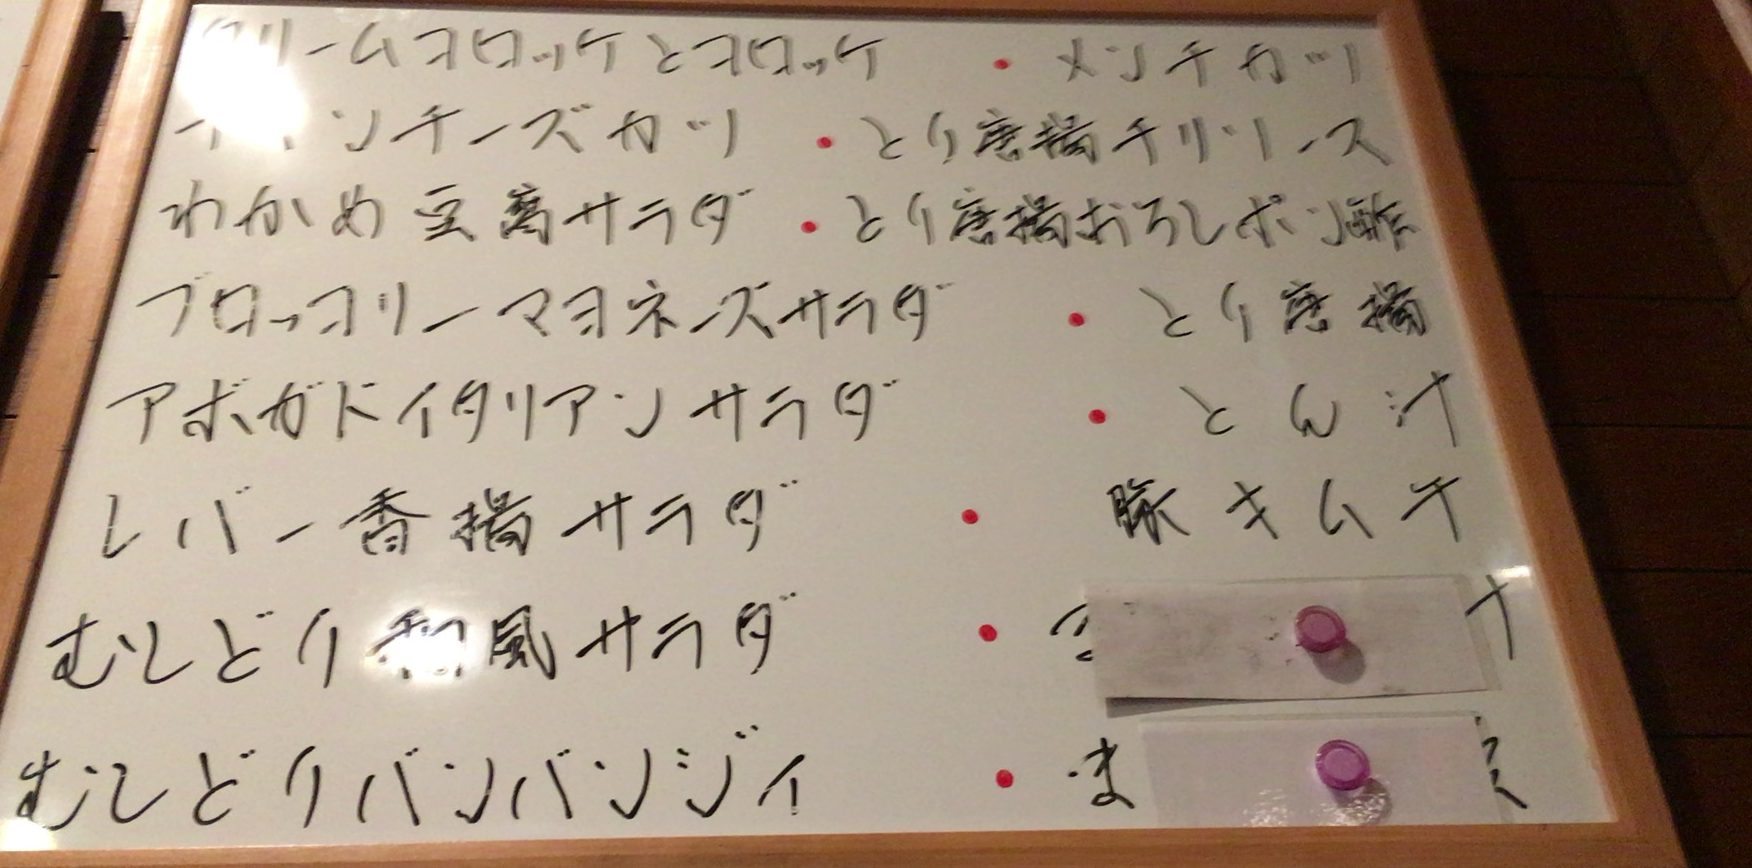 クリームコロッケとコロッケ ・ メンチカツ
チーズカツ ・ とり唐揚チリソース
わかめ豆腐サラダ ・ とり唐揚おろしポン酢
ブロッコリーマヨネーズサラダ ・ とり唐揚
アボガドイタリアンサラダ ・ とん汁
レバー香揚サラダ ・ 豚キムチ
むしどり和風サラダ ・
むしどりバンバンジィ ・ ま